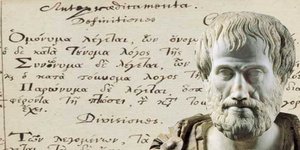 Antepraedicamenta.
Definitiones.
Ὁμώνυμα λέγεται, ὧν ὄνομ
δὲ κατὰ τοὔνομα λόγος τῆς
Συνώνυμα δὲ λέγεται, ὧν
ὁ κατὰ τοὔνομα λόγος τ
Παρώνυμα δὲ λέγεται, ὅσα
φέροντα τῇ πτώσει,
ἔχει.
Divisiones.
Τῶν λεγομένων, τὰ